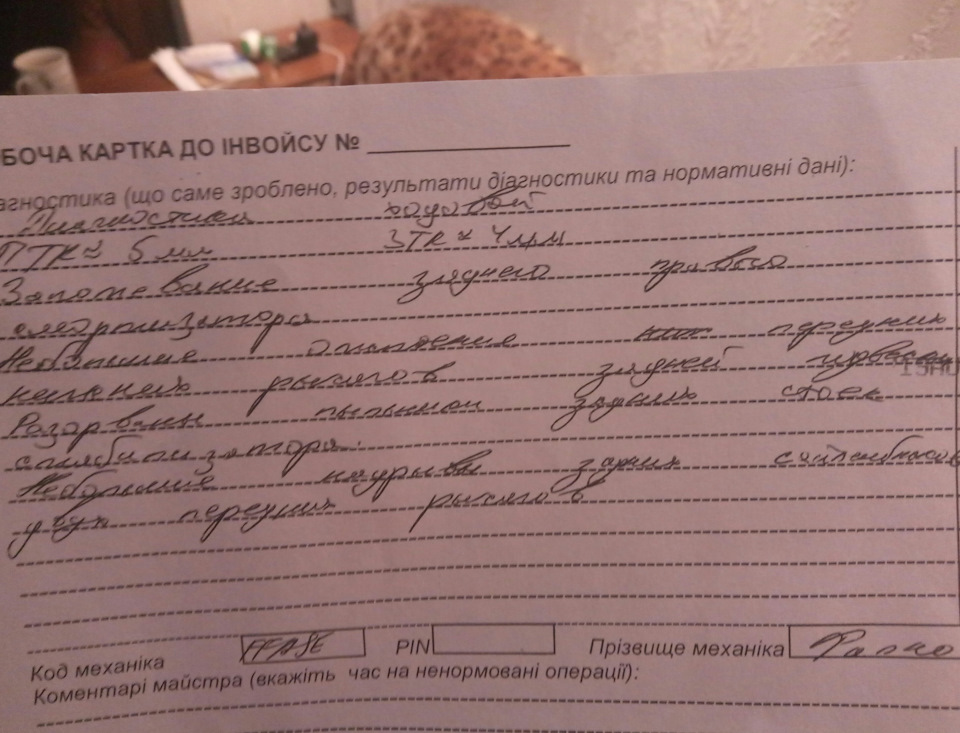 БОЧА КАРТКА ДО ІНВОЙСУ №
агностика (що саме зроблено, результати діагностики та нормативні дані):
Диагностики ходовой
ПТК ≈ 5 мм ЗТК ≈ 4 мм
Запотевание заднего правого
амортизатора
Небольшие передних
нижних рычагов задней
Разорваны пыльники задних стоек
стабилизатора.
Небольшие надрывы задних сайлентблоков
двух передних рычагов
Код механіка PIN Прізвище механіка
Коментарі майстра (вкажіть час на ненормовані операції):